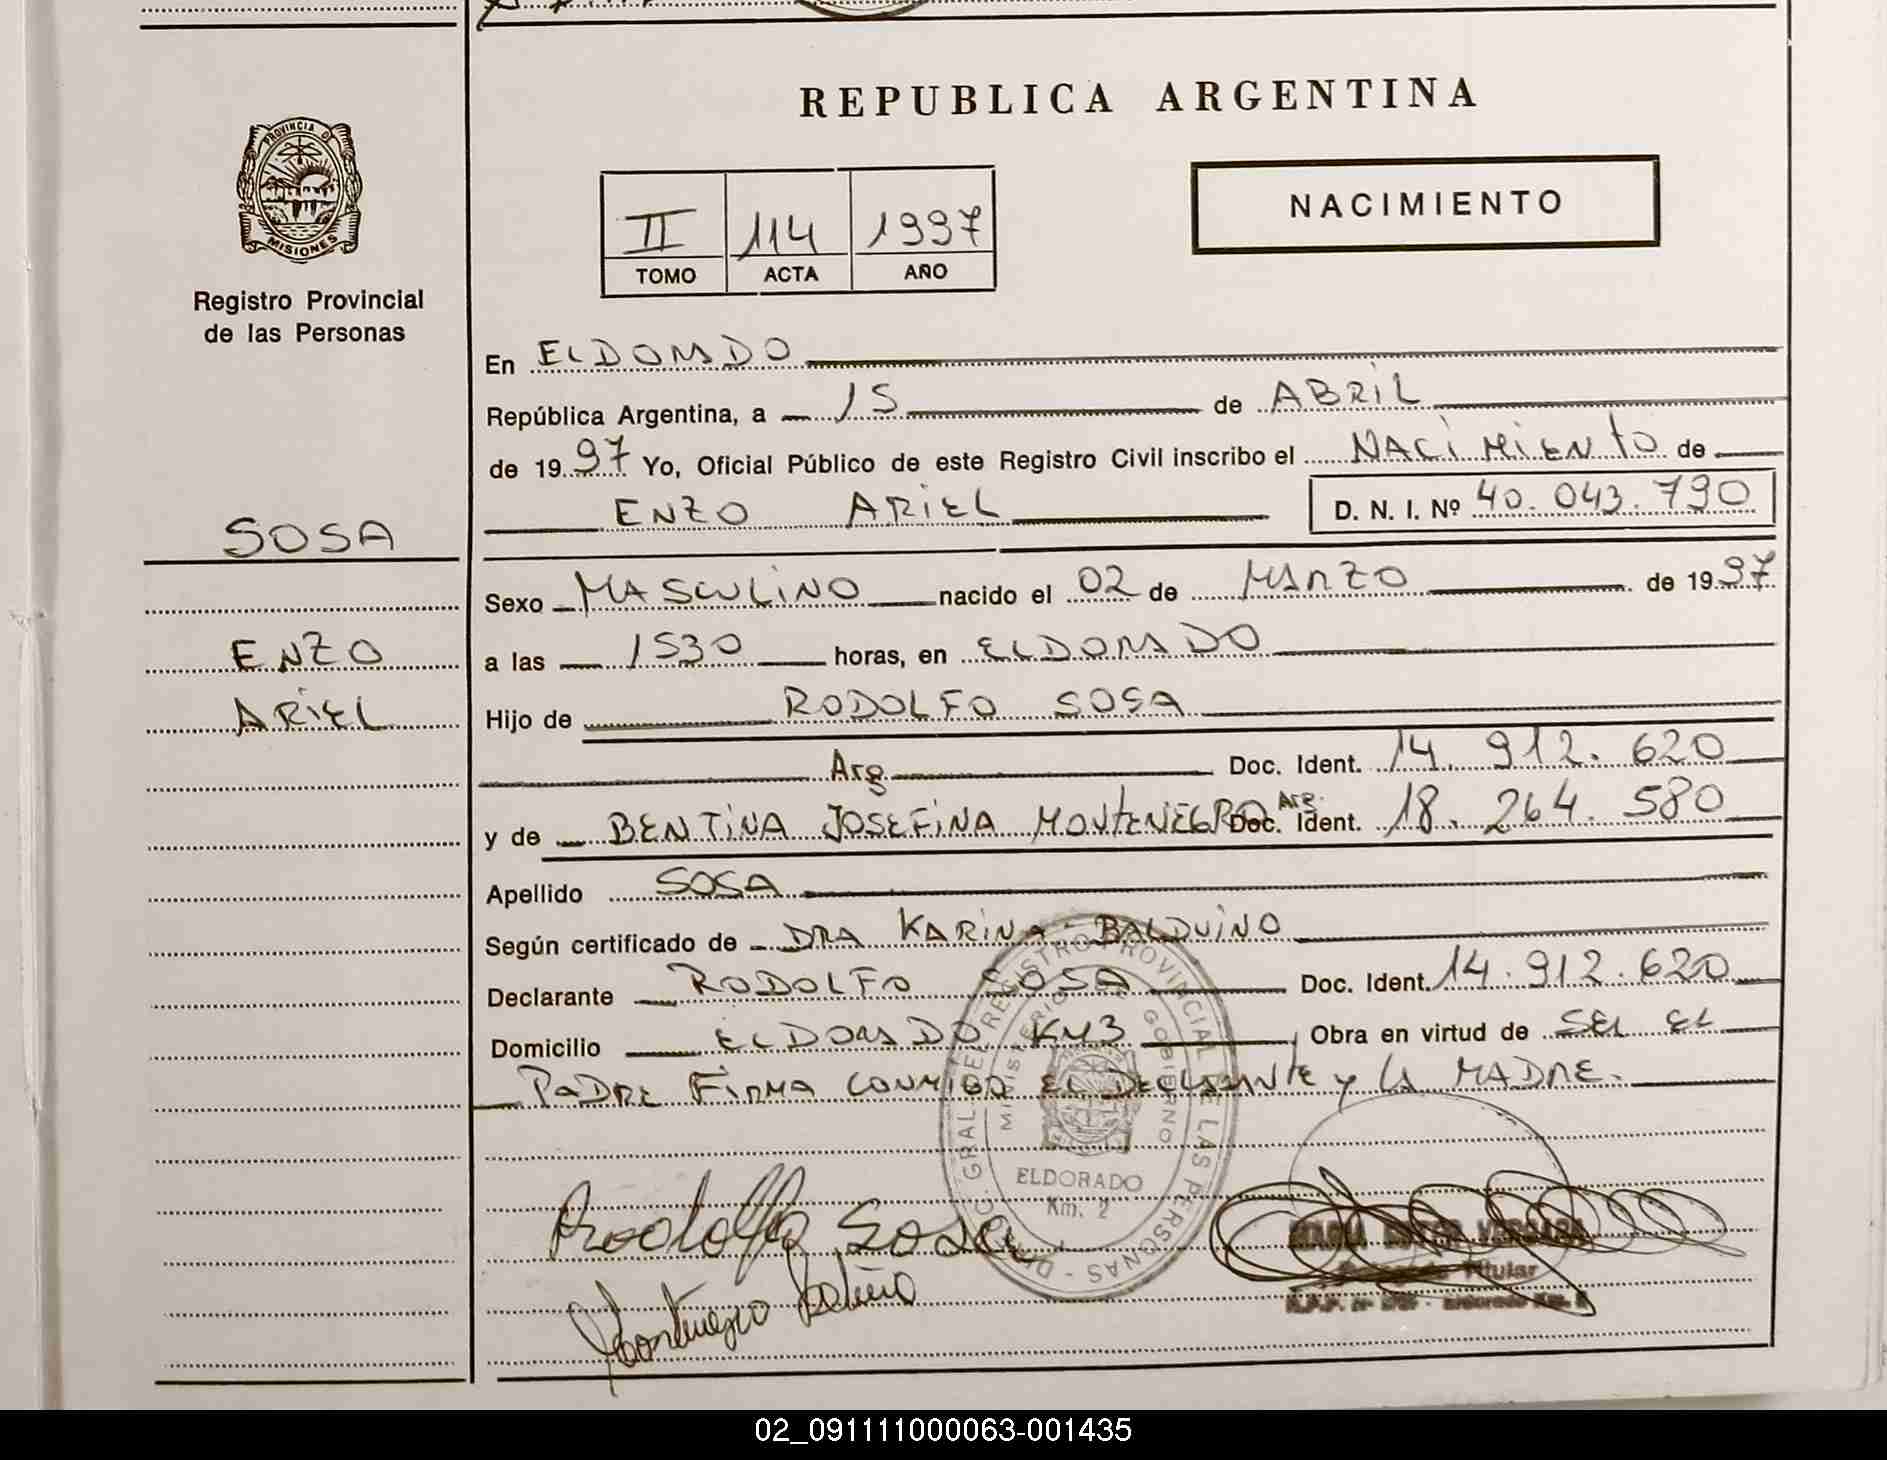 REPUBLICA ARGENTINA
PROVINCIA D
MISIONES
Registro Provincial
de las Personas
II 114 1997
TOMO ACTA AÑO
NACIMIENTO
SOSA
ENZO
ARIEL
En ELDORADO
República Argentina, a 15 de ABRIL
de 1997 Yo, Oficial Público de este Registro Civil inscribo el NACIMIENTO de
ENZO ARIEL D. N. I. Nº 40.043.790
Sexo MASCULINO nacido el 02 de MARZO de 1997
a las 1530 horas, en ELDORADO
Hijo de RODOLFO SOSA
Arg. Doc. Ident. 14.912.620
y de BENTINA JOSEFINA MONTENEGRO Arg. Doc. Ident. 18.264.580
Apellido SOSA
Según certificado de DRA KARINA BALDUINO
Declarante RODOLFO SOSA Doc. Ident. 14.912.620
Domicilio ELDORADO KM3 Obra en virtud de SER EL
PADRE FIRMA CONMIGO EL DECLARANTE y LA MADRE.
GRAL. DEL REGISTRO PROVINCIAL DE LAS PERSONAS
MINISTERIO DE GOBIERNO
ELDORADO
Km. 2
Rodolfo Sosa
Montenegro
VERGARA
Titular
02_091111000063-001435